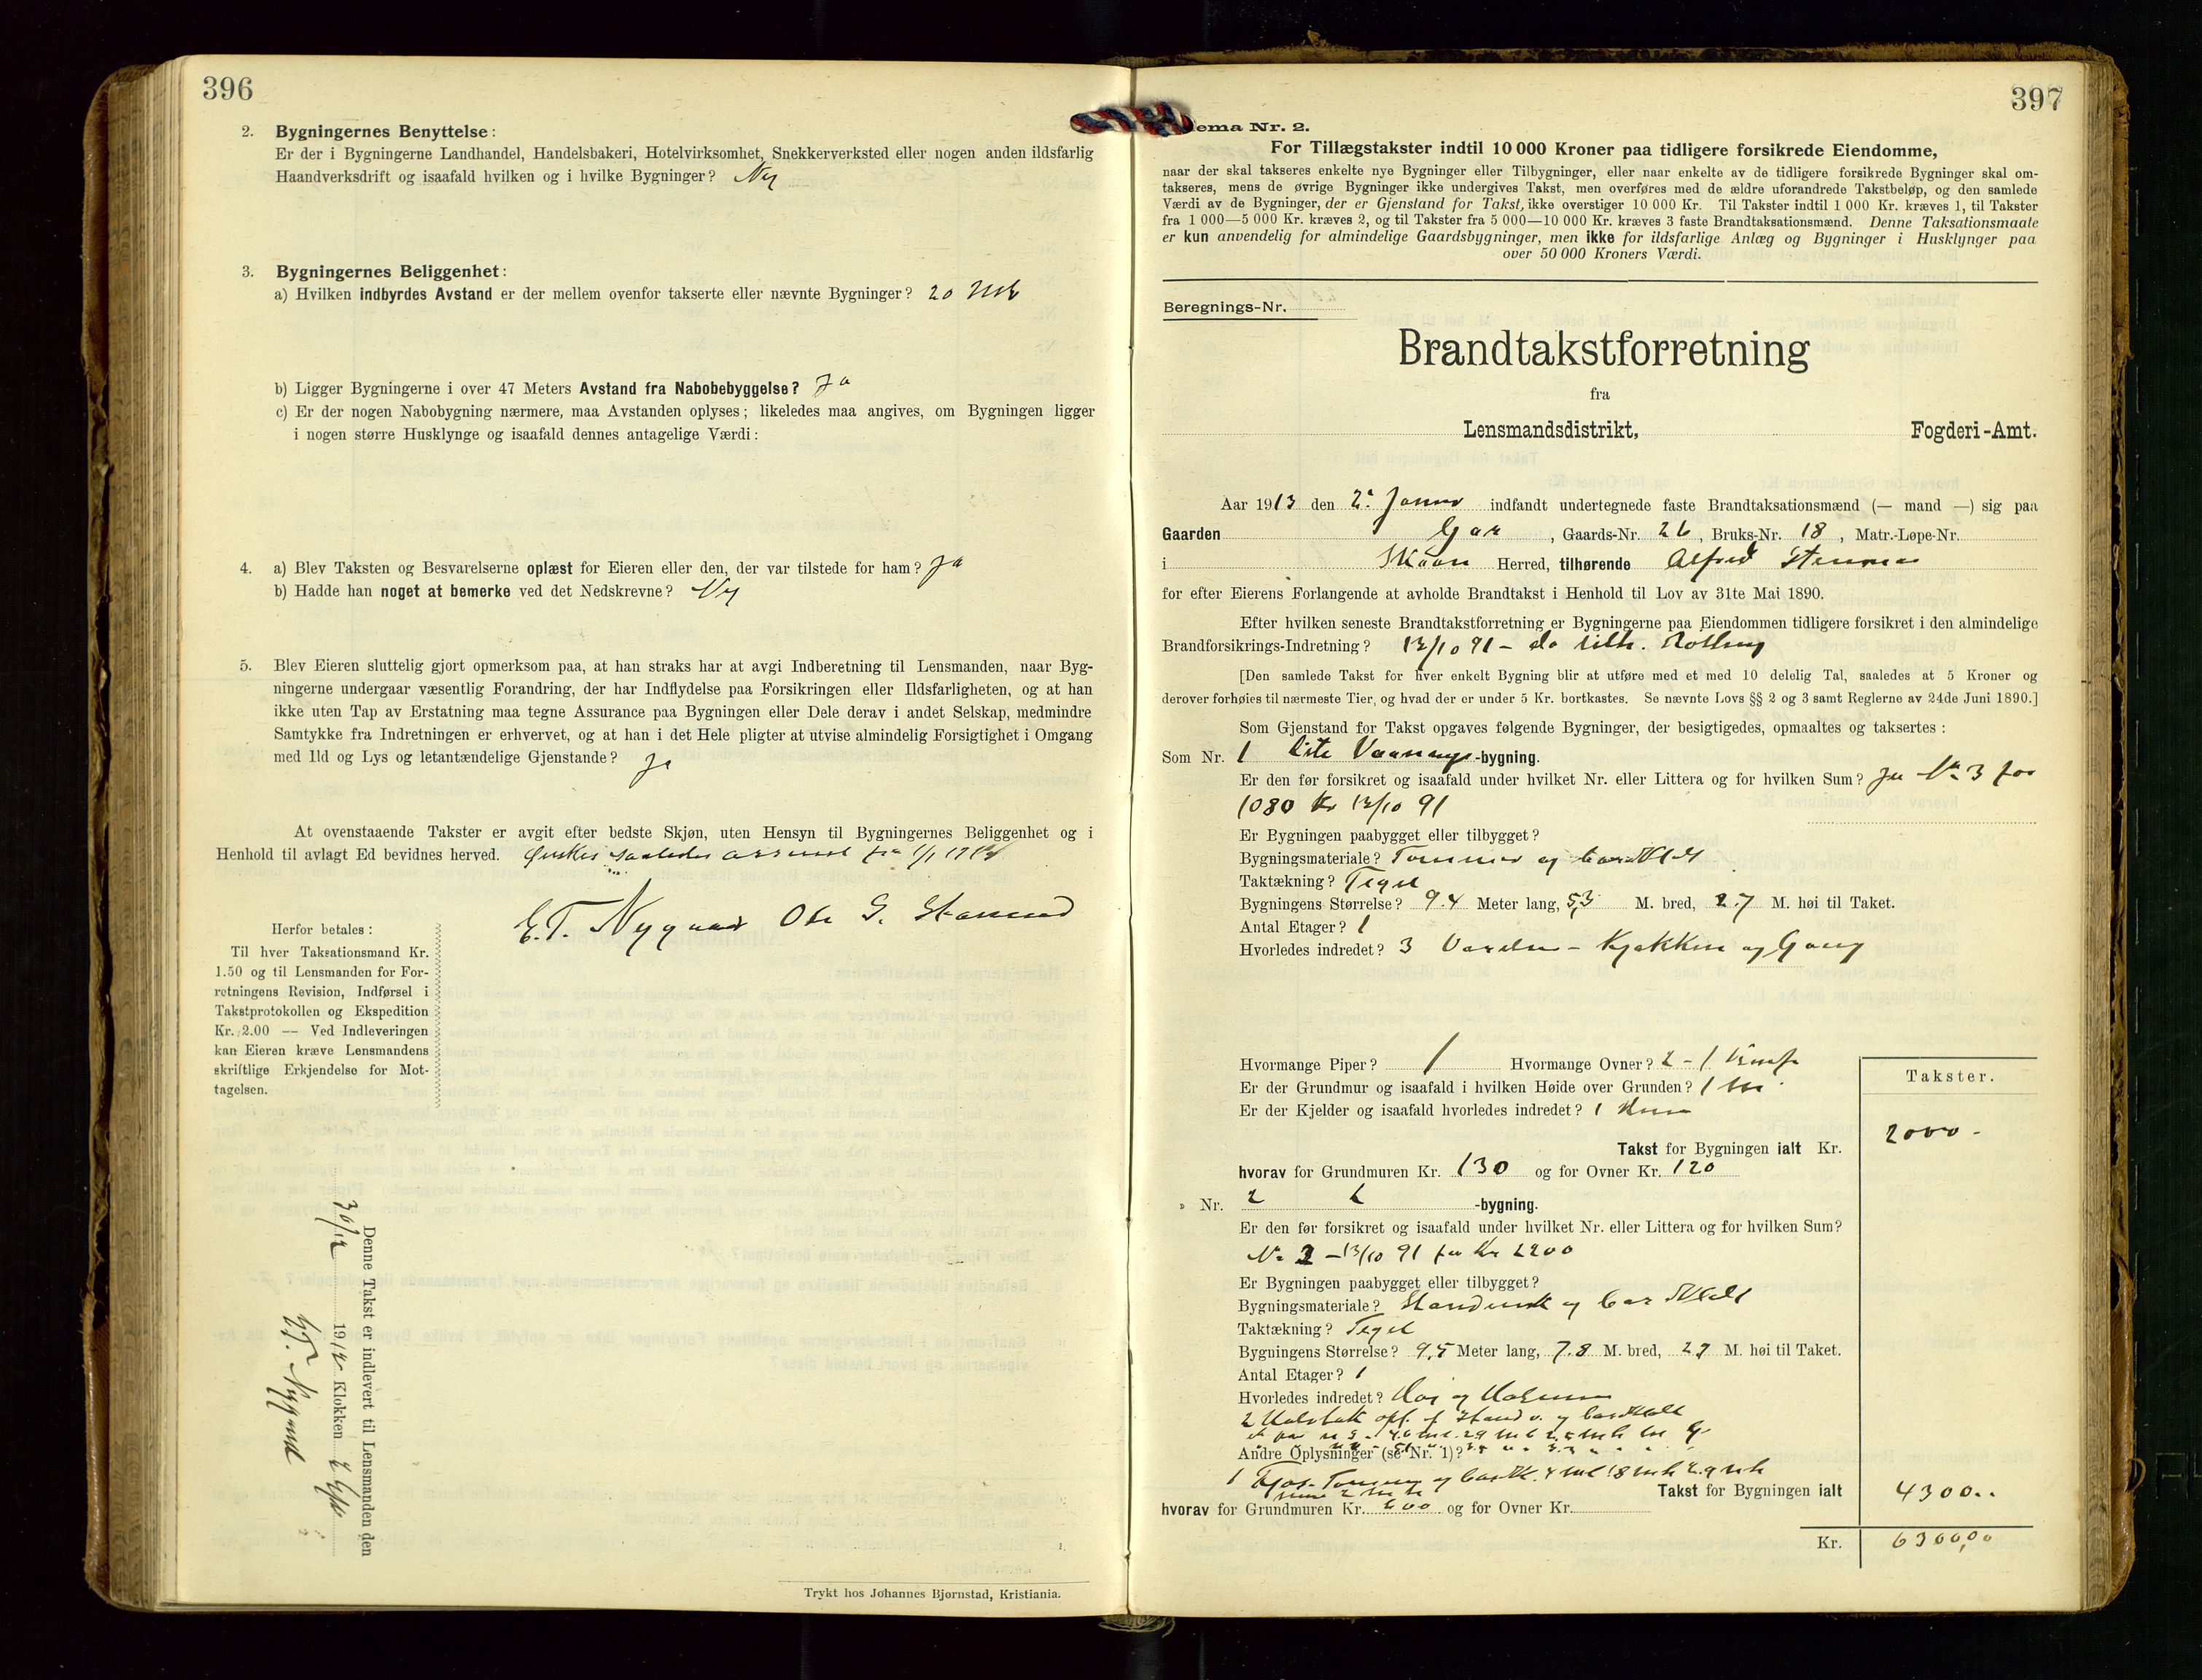 396
2. Bygningernes Benyttelse:
Er der i Bygningerne Landhandel, Handelsbakeri, Hotelvirksomhet, Snekkerverksted eller nogen anden ildsfarlig
Haandverksdrift og isaafald hvilken og i hvilke Bygninger? Nej
3. Bygningernes Beliggenhet:
a) Hvilken indbyrdes Avstand er der mellem ovenfor takserte eller nævnte Bygninger? 20 Mtr
b) Ligger Bygningerne i over 47 Meters Avstand fra Nabobebyggelse? Ja
c) Er der nogen Nabobygning nærmere, maa Avstanden oplyses; likeledes maa angives, om Bygningen ligger
i nogen større Husklynge og isaafald dennes antagelige Værdi:
4. a) Blev Taksten og Besvarelserne oplæst for Eieren eller den, der var tilstede for ham? Ja
b) Hadde han noget at bemerke ved det Nedskrevne? Nej
5. Blev Eieren sluttelig gjort opmerksom paa, at han straks har at avgi Indberetning til Lensmanden, naar Byg-
ningerne undergaar væsentlig Forandring, der har Indflydelse paa Forsikringen eller Ildsfarligheten, og at han
ikke uten Tap av Erstatning maa tegne Assurance paa Bygningen eller Dele derav i andet Selskap, medmindre
Samtykke fra Indretningen er erhvervet, og at han i det Hele pligter at utvise almindelig Forsigtighet i Omgang
med Ild og Lys og letantændelige Gjenstande? Ja
At ovenstaaende Takster er avgit efter bedste Skjøn, uten Hensyn til Bygningernes Beliggenhet og i
Henhold til avlagt Ed bevidnes herved. Ønskes saaledes fra 1/1
E. T. Nygaard Ole G.
Herfor betales:
Til hver Taksationsmand Kr.
1.50 og til Lensmanden for For-
retningens Revision, Indførsel i
Takstprotokollen og Ekspedition
Kr. 2.00 — Ved Indleveringen
kan Eieren kræve Lensmandens
skriftlige Erkjendelse for Mot-
tagelsen.
Denne Takst er indlevert til Lensmanden den
30/12 1912 Klokken
E. T. Nygaard
Trykt hos Johannes Bjørnstad, Kristiania.
397
ema Nr. 2.
For Tillægstakster indtil 10 000 Kroner paa tidligere forsikrede Eiendomme,
naar der skal takseres enkelte nye Bygninger eller Tilbygninger, eller naar enkelte av de tidligere forsikrede Bygninger skal om-
takseres, mens de øvrige Bygninger ikke undergives Takst, men overføres med de ældre uforandrede Takstbeløp, og den samlede
Værdi av de Bygninger, der er Gjenstand for Takst, ikke overstiger 10 000 Kr. Til Takster indtil 1 000 Kr. kræves 1, til Takster
fra 1 000—5 000 Kr. kræves 2, og til Takster fra 5 000—10 000 Kr. kræves 3 faste Brandtaksationsmænd. Denne Taksationsmaate
er kun anvendelig for almindelige Gaardsbygninger, men ikke for ildsfarlige Anlæg og Bygninger i Husklynger paa
over 50 000 Kroners Værdi.
Beregnings-Nr.
Brandtakstforretning
fra
Lensmandsdistrikt, Fogderi-Amt.
Aar 1913 den 2. indfandt undertegnede faste Brandtaksationsmænd (— mand —) sig paa
Gaarden , Gaards-Nr. 26, Bruks-Nr. 18, Matr.-Løpe-Nr.
i Skaan Herred, tilhørende Alfred
for efter Eierens Forlangende at avholde Brandtakst i Henhold til Lov av 31te Mai 1890.
Efter hvilken seneste Brandtakstforretning er Bygningerne paa Eiendommen tidligere forsikret i den almindelige
Brandforsikrings-Indretning? 13/10 91 – da tilh.
[Den samlede Takst for hver enkelt Bygning blir at utføre med et med 10 delelig Tal, saaledes at 5 Kroner og
derover forhøies til nærmeste Tier, og hvad der er under 5 Kr. bortkastes. Se nævnte Lovs §§ 2 og 3 samt Reglerne av 24de Juni 1890.]
Som Gjenstand for Takst opgaves følgende Bygninger, der besigtigedes, opmaaltes og taksertes:
Som Nr. 1 Vaanings-bygning.
Er den før forsikret og isaafald under hvilket Nr. eller Littera og for hvilken Sum? Ja No 3 for
1080 Kr 13/10 91
Er Bygningen paabygget eller tilbygget?
Bygningsmateriale? Tømmer og bordklædt
Taktækning? Tegel
Bygningens Størrelse? 9.4 Meter lang, 5,3 M. bred, 2.7 M. høi til Taket.
Antal Etager? 1
Hvorledes indredet? 3 Værelser – Kjøkken og Gang
Hvormange Piper? 1 Hvormange Ovner? 2 – 1 Komf.
Er der Grundmur og isaafald i hvilken Høide over Grunden? 1 M.
Er der Kjelder og isaafald hvorledes indredet? 1 Rum
Takster.
Takst for Bygningen ialt Kr. 2000 -
hvorav for Grundmuren Kr. 130 og for Ovner Kr. 120
» Nr. 2 -bygning.
Er den før forsikret og isaafald under hvilket Nr. eller Littera og for hvilken Sum?
No 2 – 13/10 91 for Kr 2200
Er Bygningen paabygget eller tilbygget?
Bygningsmateriale? Standverk og bordklædt
Taktækning? Tegel
Bygningens Størrelse? 9,5 Meter lang, 7.8 M. bred, 2.7 M. høi til Taket.
Antal Etager? 1
Hvorledes indredet?
2 opf. af Standv. og bordklædt
Andre Oplysninger (se Nr. 1)?
1 Fjøs Tømmer og bordk.
Takst for Bygningen ialt 4300..
hvorav for Grundmuren Kr. 600 og for Ovner Kr.
Kr. 6300,00